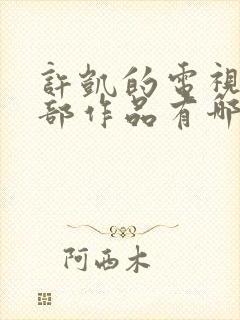 許凱的電視
部作品有哪
阿西木